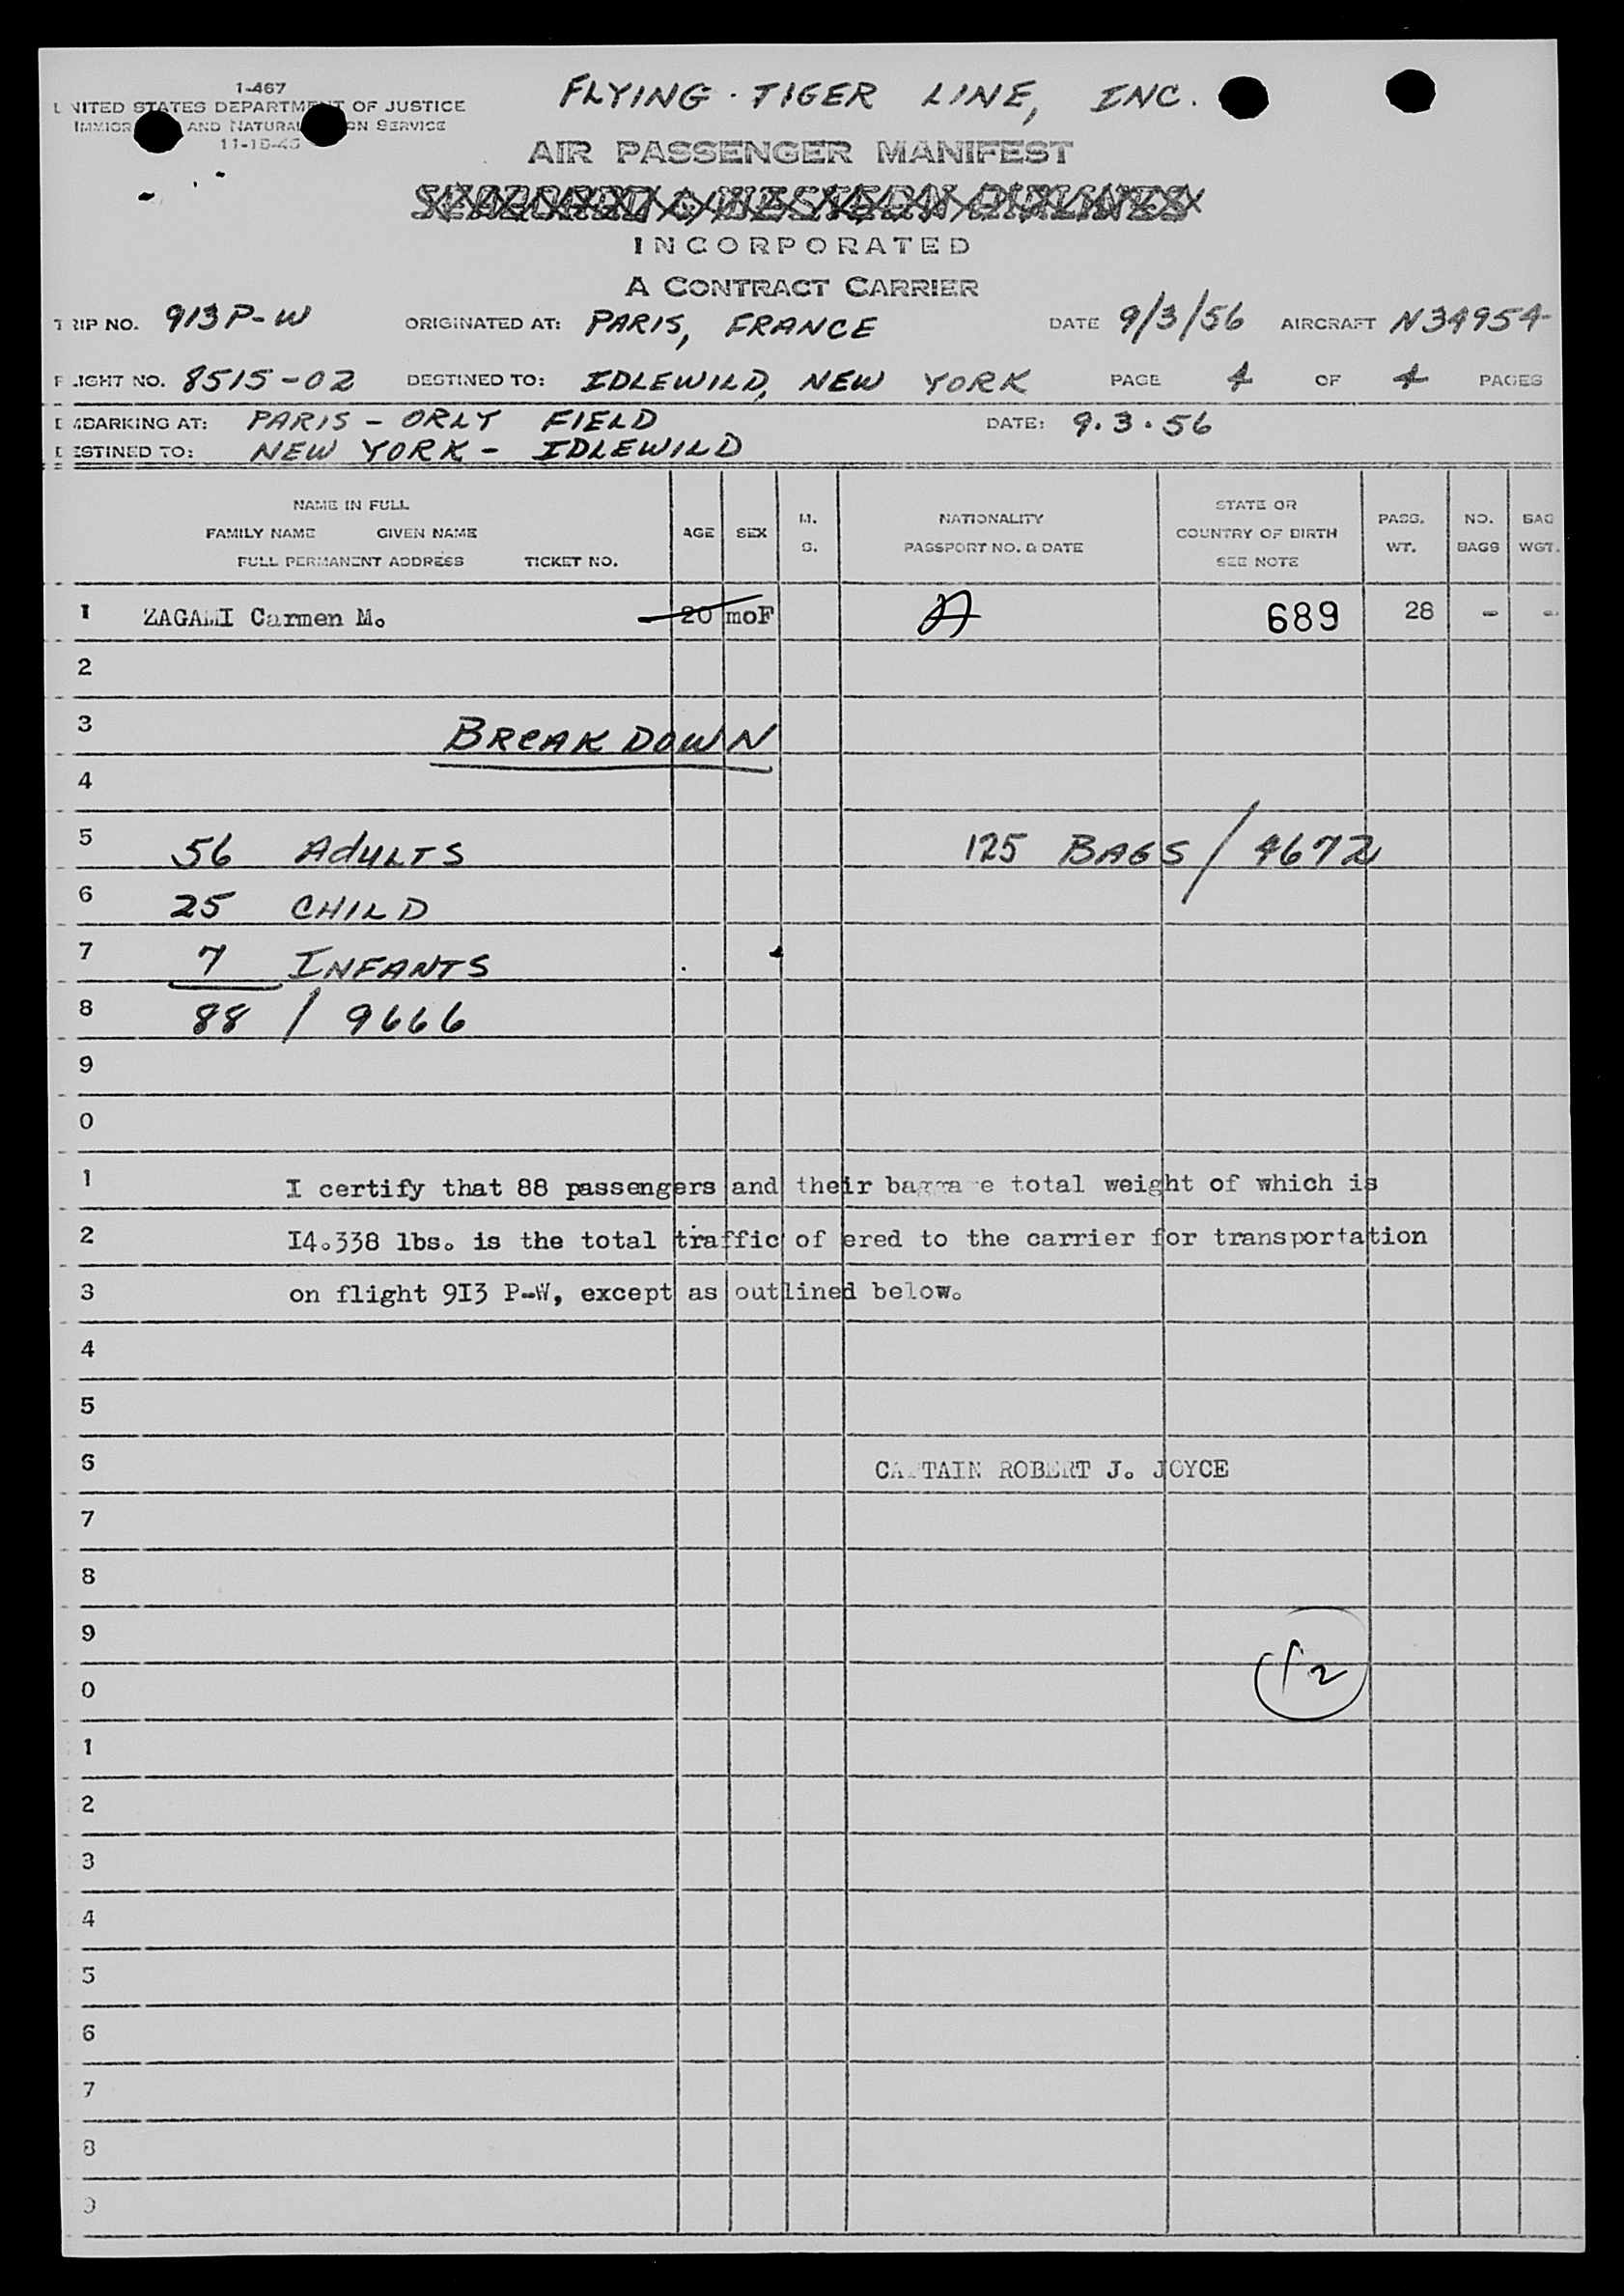 1-467
UNITED STATES DEPARTMENT OF JUSTICE
AND
SERVICE
FLYING · TIGER LINE, INC.
AIR PASSENGER MANIFEST
INCORPORATED
A CONTRACT CARRIER
TRIP NO. 913P-W ORIGINATED AT: PARIS, FRANCE DATE 9/3/56 AIRCRAFT N34954
FLIGHT NO. 8515-02 DESTINED TO: IDLEWILD, NEW YORK PAGE 4 OF 4 PAGES
EMBARKING AT: PARIS - ORLY FIELD DATE: 9.3.56
DESTINED TO: NEW YORK - IDLEWILD
NAME IN FULL
FAMILY NAME GIVEN NAME
FULL PERMANENT ADDRESS TICKET NO.
AGE SEX M. S.
NATIONALITY
PASSPORT NO. & DATE
STATE OR
COUNTRY OF BIRTH
SEE NOTE
PASS. WT.
NO. BAGS
BAG WGT.
1 ZAGAMI Carmen M. 20 moF 689 28 - -
2
3 BREAKDOWN
4
5 56 ADULTS 125 BAGS / 4672
6 25 CHILD
7 7 INFANTS
8 88 / 9666
9
0
1 I certify that 88 passengers and their baggage total weight of which is
2 I4.338 lbs. is the total traffic of ered to the carrier for transportation
3 on flight 9I3 P-W, except as outlined below.
4
5
6 CAPTAIN ROBERT J. JOYCE
7
8
9
0 12
1
2
3
4
5
6
7
8
9